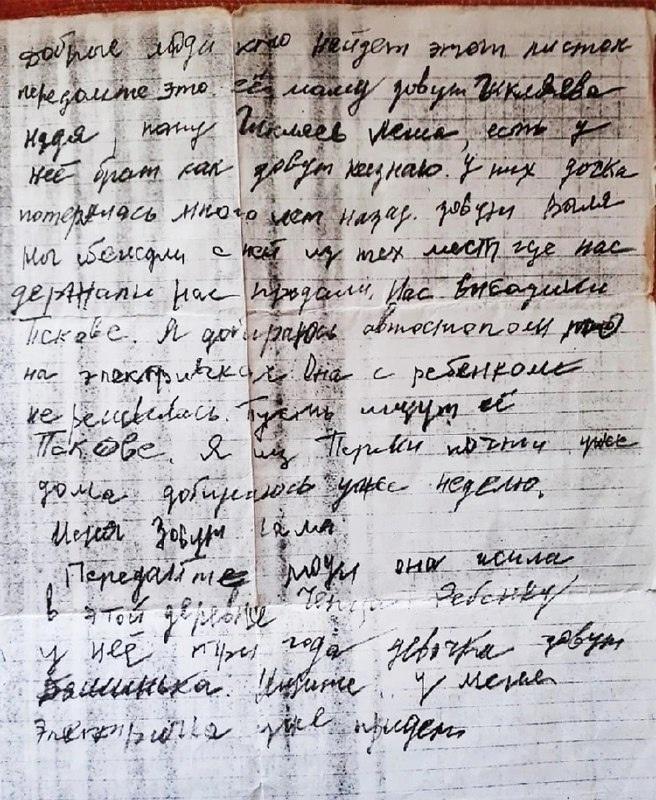 Добрые люди кто найдет этот листок
передайте это. её маму зовут Шкляева
Надя, папу Шкляев Леша, есть у
неё брат как зовут незнаю. У них дочка
потерялась много лет назад. зовут Валя
Мы сбежали с ней из тех мест где нас
держали нас продали. Нас
Пскове. Я добираюсь автостопом
на электричках Она с ребенком
не решилась. Пусть ищут её
Пскове. Я из Перми почти уже
дома добираюсь уже неделю.
Меня Зовут
Передайте люди она жила
в этой деревне
у неё три года девочка зовут
Ищите у меня
Электричка уже